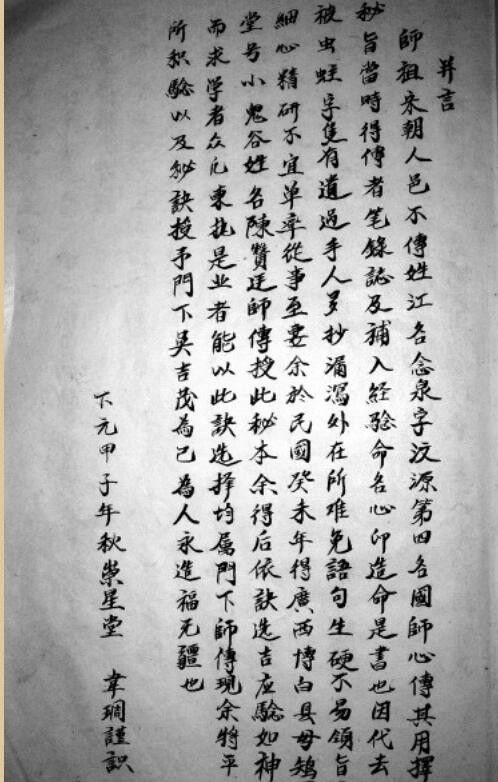 弁言
師祖宋朝人邑不傳姓江名念泉字汶源第四名國師心傳其用擇
秘旨當時得傳者笔錄誌及補入經驗命名心印造命是書也因代去
被虫蛀字隻有遺過手人多抄漏瀉外在所难免語句生硬不易領旨
細心精研不宜单率從事至要余於民國癸未年得廣西博白县母鸡
堂号小鬼谷姓名陳贊廷師傳授此秘本余得后依訣选吉应驗如神
而求学者众凡東執是业者能以此訣选择均属門下師傳現余將平
所积驗以及秘訣授予門下吳吉茂為己為人永造福无疆也
下元甲子年秋榮星堂 韋琱謹識